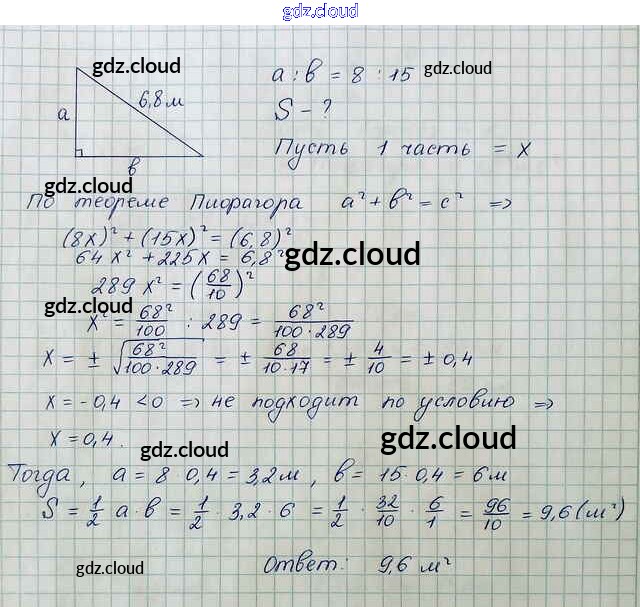 gdz.cloud
gdz.cloud
a : b = 8 : 15 gdz.cloud
6,8 м
a
S - ?
Пусть 1 часть = x
b
gdz.cloud
По теореме Пифагора a² + b² = c² ⇒
(8x)² + (15x)² = (6,8)²
64x² + 225x = 6,8² gdz.cloud
289 x² = (68/10)²
gdz.cloud
x² = 68²/100 : 289 = 68²/100·289
x = ± √68²/100·289 = ± 68/10·17 = ± 4/10 = ± 0,4
x = -0,4 < 0 ⇒ не подходит по условию ⇒
x = 0,4. gdz.cloud gdz.cloud
Тогда, a = 8·0,4 = 3,2 м, b = 15·0,4 = 6 м
S = 1/2 a·b = 1/2 · 3,2 · 6 = 1/2 · 32/10 · 6/1 = 96/10 = 9,6 (м²)
gdz.cloud Ответ: 9,6 м²